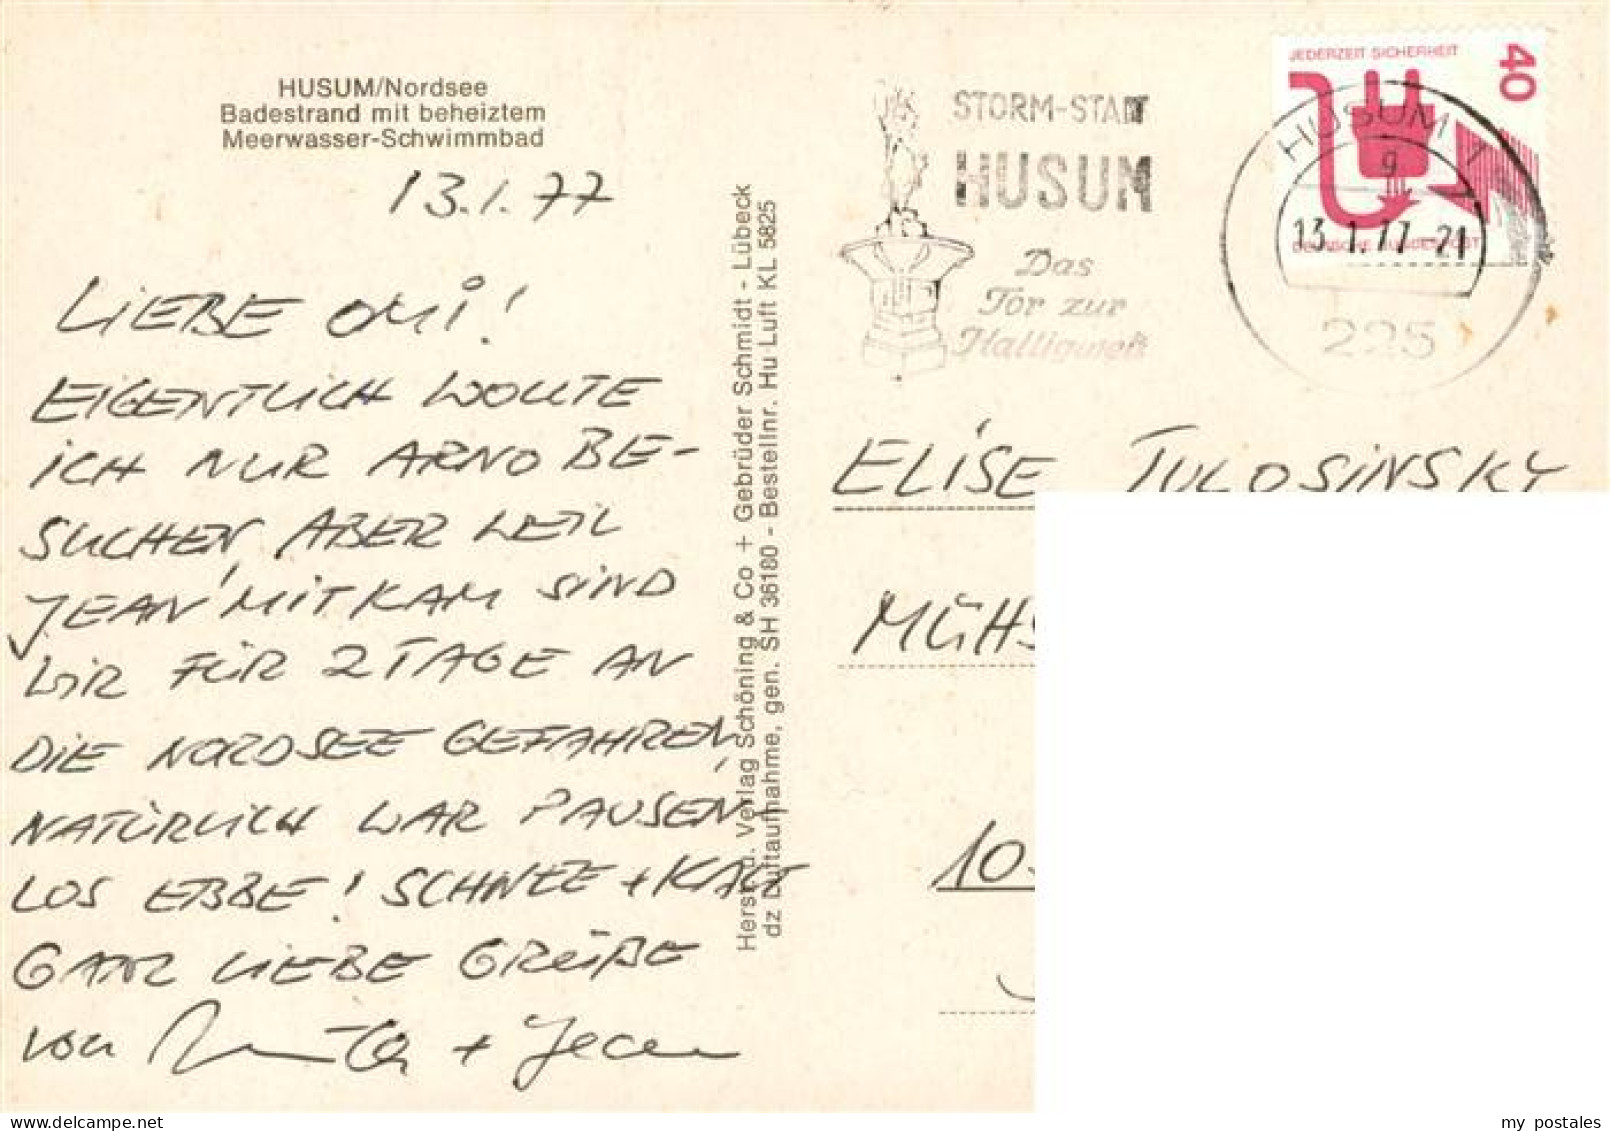 HUSUM/Nordsee
Badestrand mit beheiztem
Meerwasser-Schwimmbad
13.1.77
LIEBE OMI!
EIGENTLICH WOLLTE
ICH NUR ARNO BE-
SUCHEN, ABER WEIL
JEAN MITKAM SIND
WIR FÜR 2 TAGE AN
DIE NORDSEE GEFAHREN,
NATÜRLICH WAR PAUSEN,
LOS EBBE! SCHNEE + KALT
GANZ LIEBE GRÜßE
von + Jean
Herst. u. Verlag Schöning & Co + Gebrüder Schmidt - Lübeck
dz Luftaufnahme, gen. SH 36180 - Bestellnr. Hu Luft KL 5825
STORM-STADT
HUSUM
Das
Tor zur
Halligwelt
JEDERZEIT SICHERHEIT
40
DEUTSCHE BUNDESPOST
HUSUM 1
g
13.1.77-21
225
ELISE TULOSINSKY
MÜHS
10
my postales